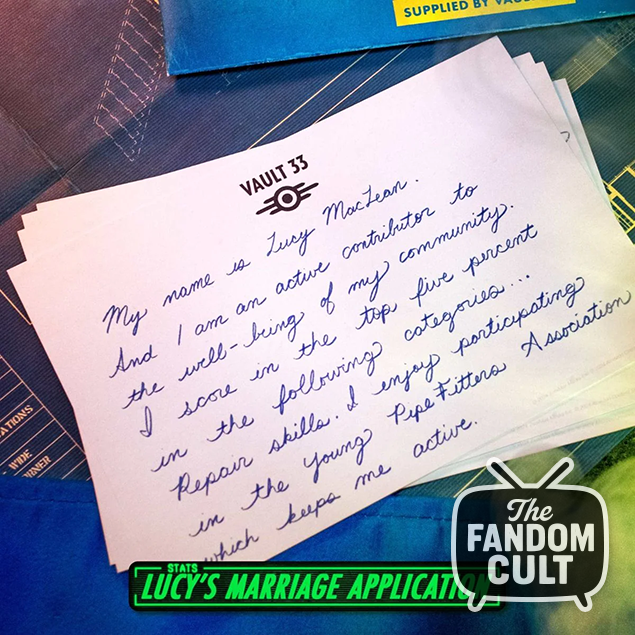 SUPPLIED BY
VAULT 33
My name is Lucy MacLean.
And I am an active contributor to
the well-being of my community.
I score in the top five percent
in the following categories...
Repair skills. I enjoy participating
in the young PipeFitters Association
which keeps me active.
WIDE
STATS
LUCY'S MARRIAGE APPLICATION
The
FANDOM
CULT